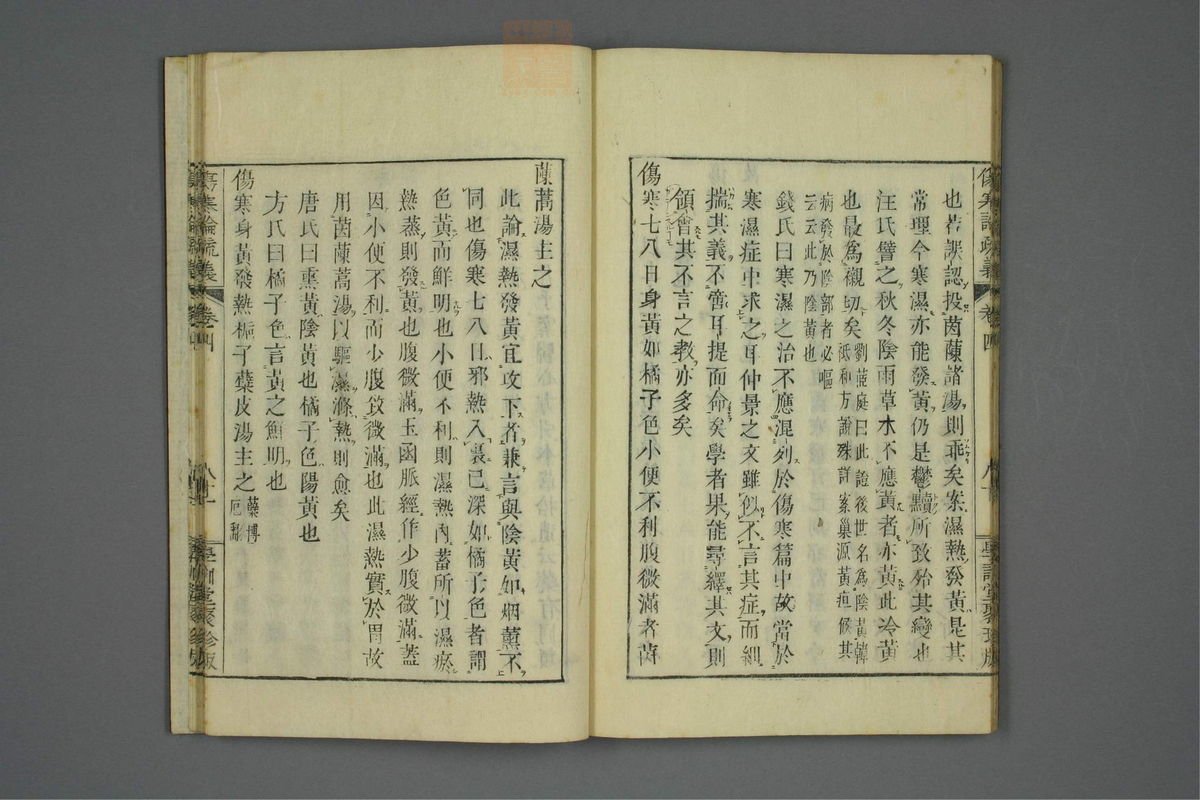 傷寒論疏義 卷四 學訓堂聚珍版
也若誤認投茵蔯諸湯則乖矣案濕熱發黃是其
常理今寒濕亦能發黃仍是鬱黷所致殆其變也
汪氏譬之秋冬陰雨草木不應黃者亦黃此冷黃
也最為襯切矣劉茝庭曰此證後世名為陰黃韓
祗和方論殊詳案巢源黃疸候其
病發於陰部者必嘔
云云此乃陰黃也
錢氏曰寒濕之治不應混列於傷寒篇中故當於
寒濕症中求之耳仲景之文雖似不言其症而細
揣其義不啻耳提而命矣學者果能尋繹其文則
領會其不言之教亦多矣
傷寒七八日身黃如橘子色小便不利腹微滿者茵
蔯蒿湯主之
此論濕熱發黃宜攻下者兼言與陰黃如烟薰不
同也傷寒七八日邪熱入裏已深如橘子色者謂
色黃而鮮明也小便不利則濕熱內蓄所以濕瘀
熱蒸則發黃也腹微滿玉函脈經作少腹微滿蓋
因小便不利而少腹故微滿也此濕熱實於胃故
用茵蔯蒿湯以驅濕滌熱則愈矣
唐氏曰熏黃陰黃也橘子色陽黃也
方氏曰橘子色言黃之鮮明也
傷寒身黃發熱梔子蘗皮湯主之蘗博
厄翻
傷寒論疏義 卷四 學訓堂聚珍版